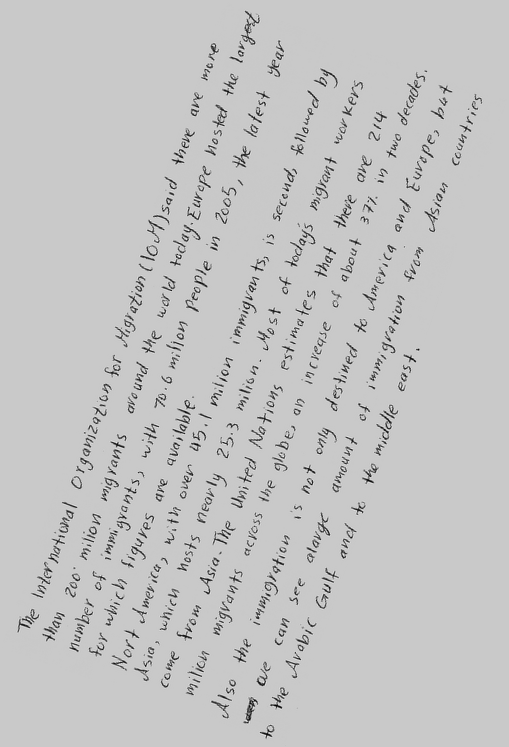 The International Organization for Migration (IOM) said there are more
than 200 milion migrants around the world today. Europe hosted the largest
number of immigrants, with 70.6 milion people in 2005, the latest year
for which figures are available.
Nort America, with over 45.1 milion immigrants, is second, followed by
Asia, which hosts nearly 25.3 milion. Most of today's migrant workers
come from Asia. The United Nations estimates that there are 214
milion migrants across the globe, an increase of about 37% in two decades.
Also the immigration is not only destined to America and Europe, but
we can see alarge amount of immigration from Asian countries
to the Arabic Gulf and to the middle east.